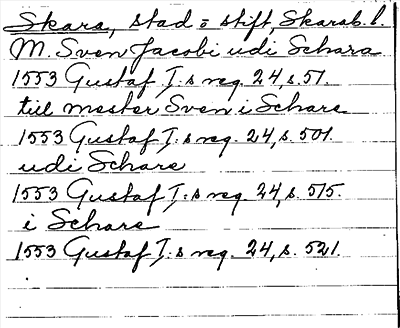 Skara, stad o stift, Skarab. l.
M. Sven Jacobi udi Schara
1553 Gustaf I:s reg. 24, s. 51.
till mester Sven i Schara
1553 Gustaf I:s reg. 24, s. 501.
udi Schare
1553 Gustaf I:s reg. 24, s. 515.
i Schare
1553 Gustaf I:s reg. 24, s. 521.